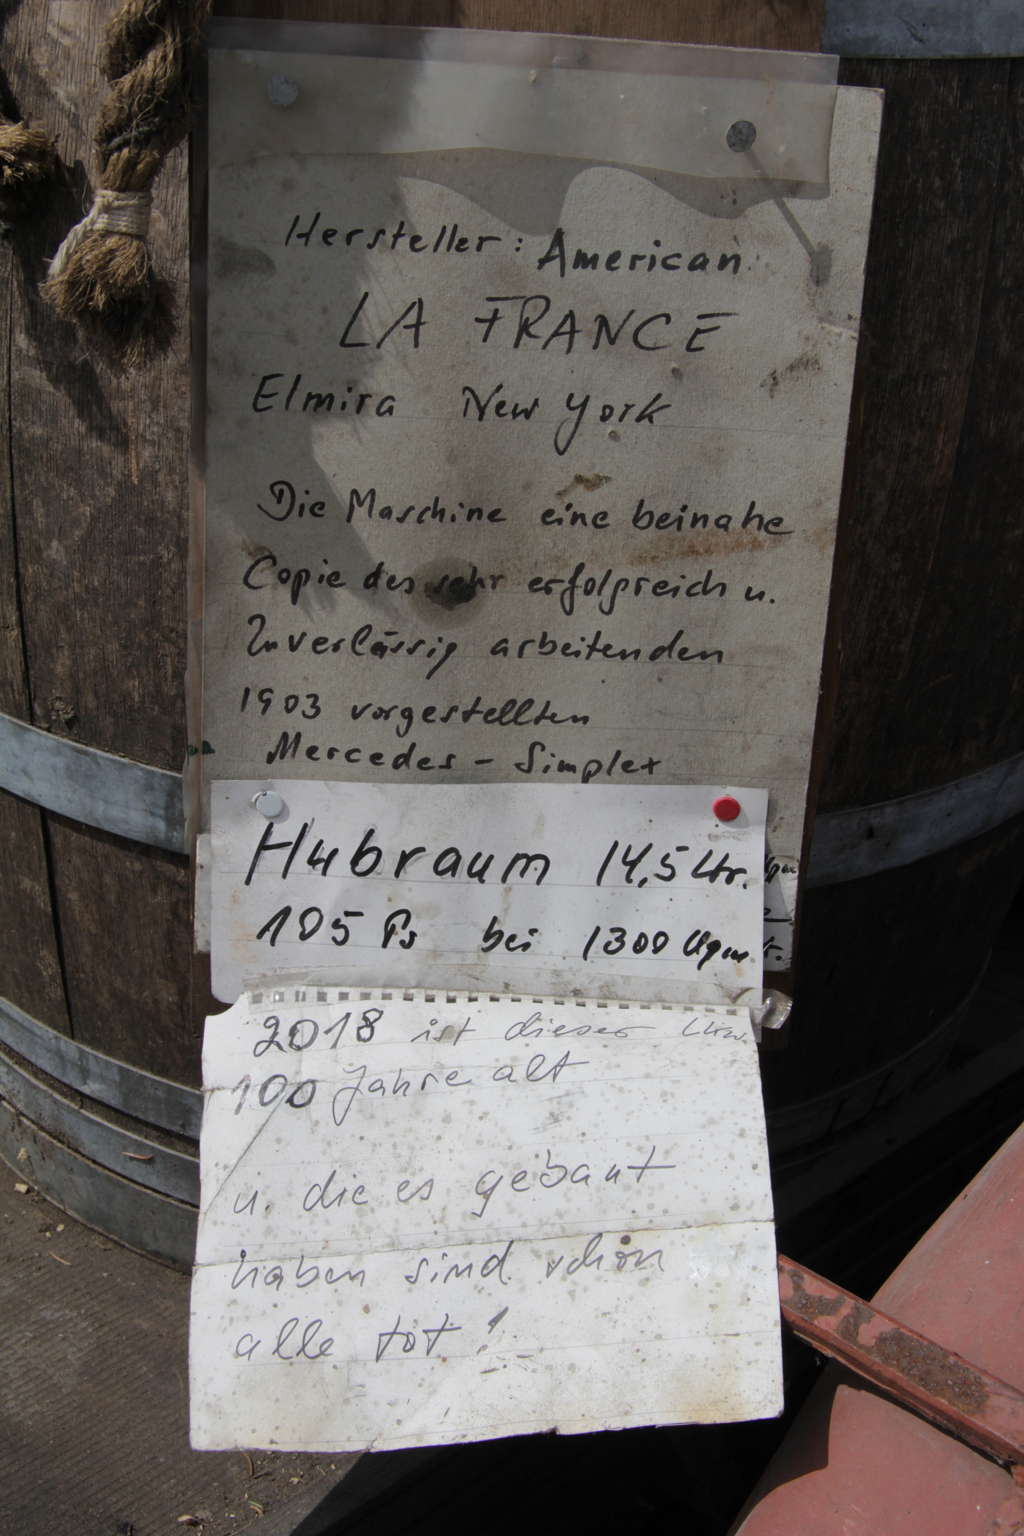 Hersteller: American
LA FRANCE
Elmira New York
Die Maschine eine beinahe
Copie des sehr erfolgreich u.
Zuverlässig arbeitenden
1903 vorgestellten
Mercedes - Simplex
Hubraum 14,5 Ltr.
105 Ps bei 1300 Upm
2018 ist dieser Lkw.
100 Jahre alt
u. die es gebaut
haben sind schon
alle tot!